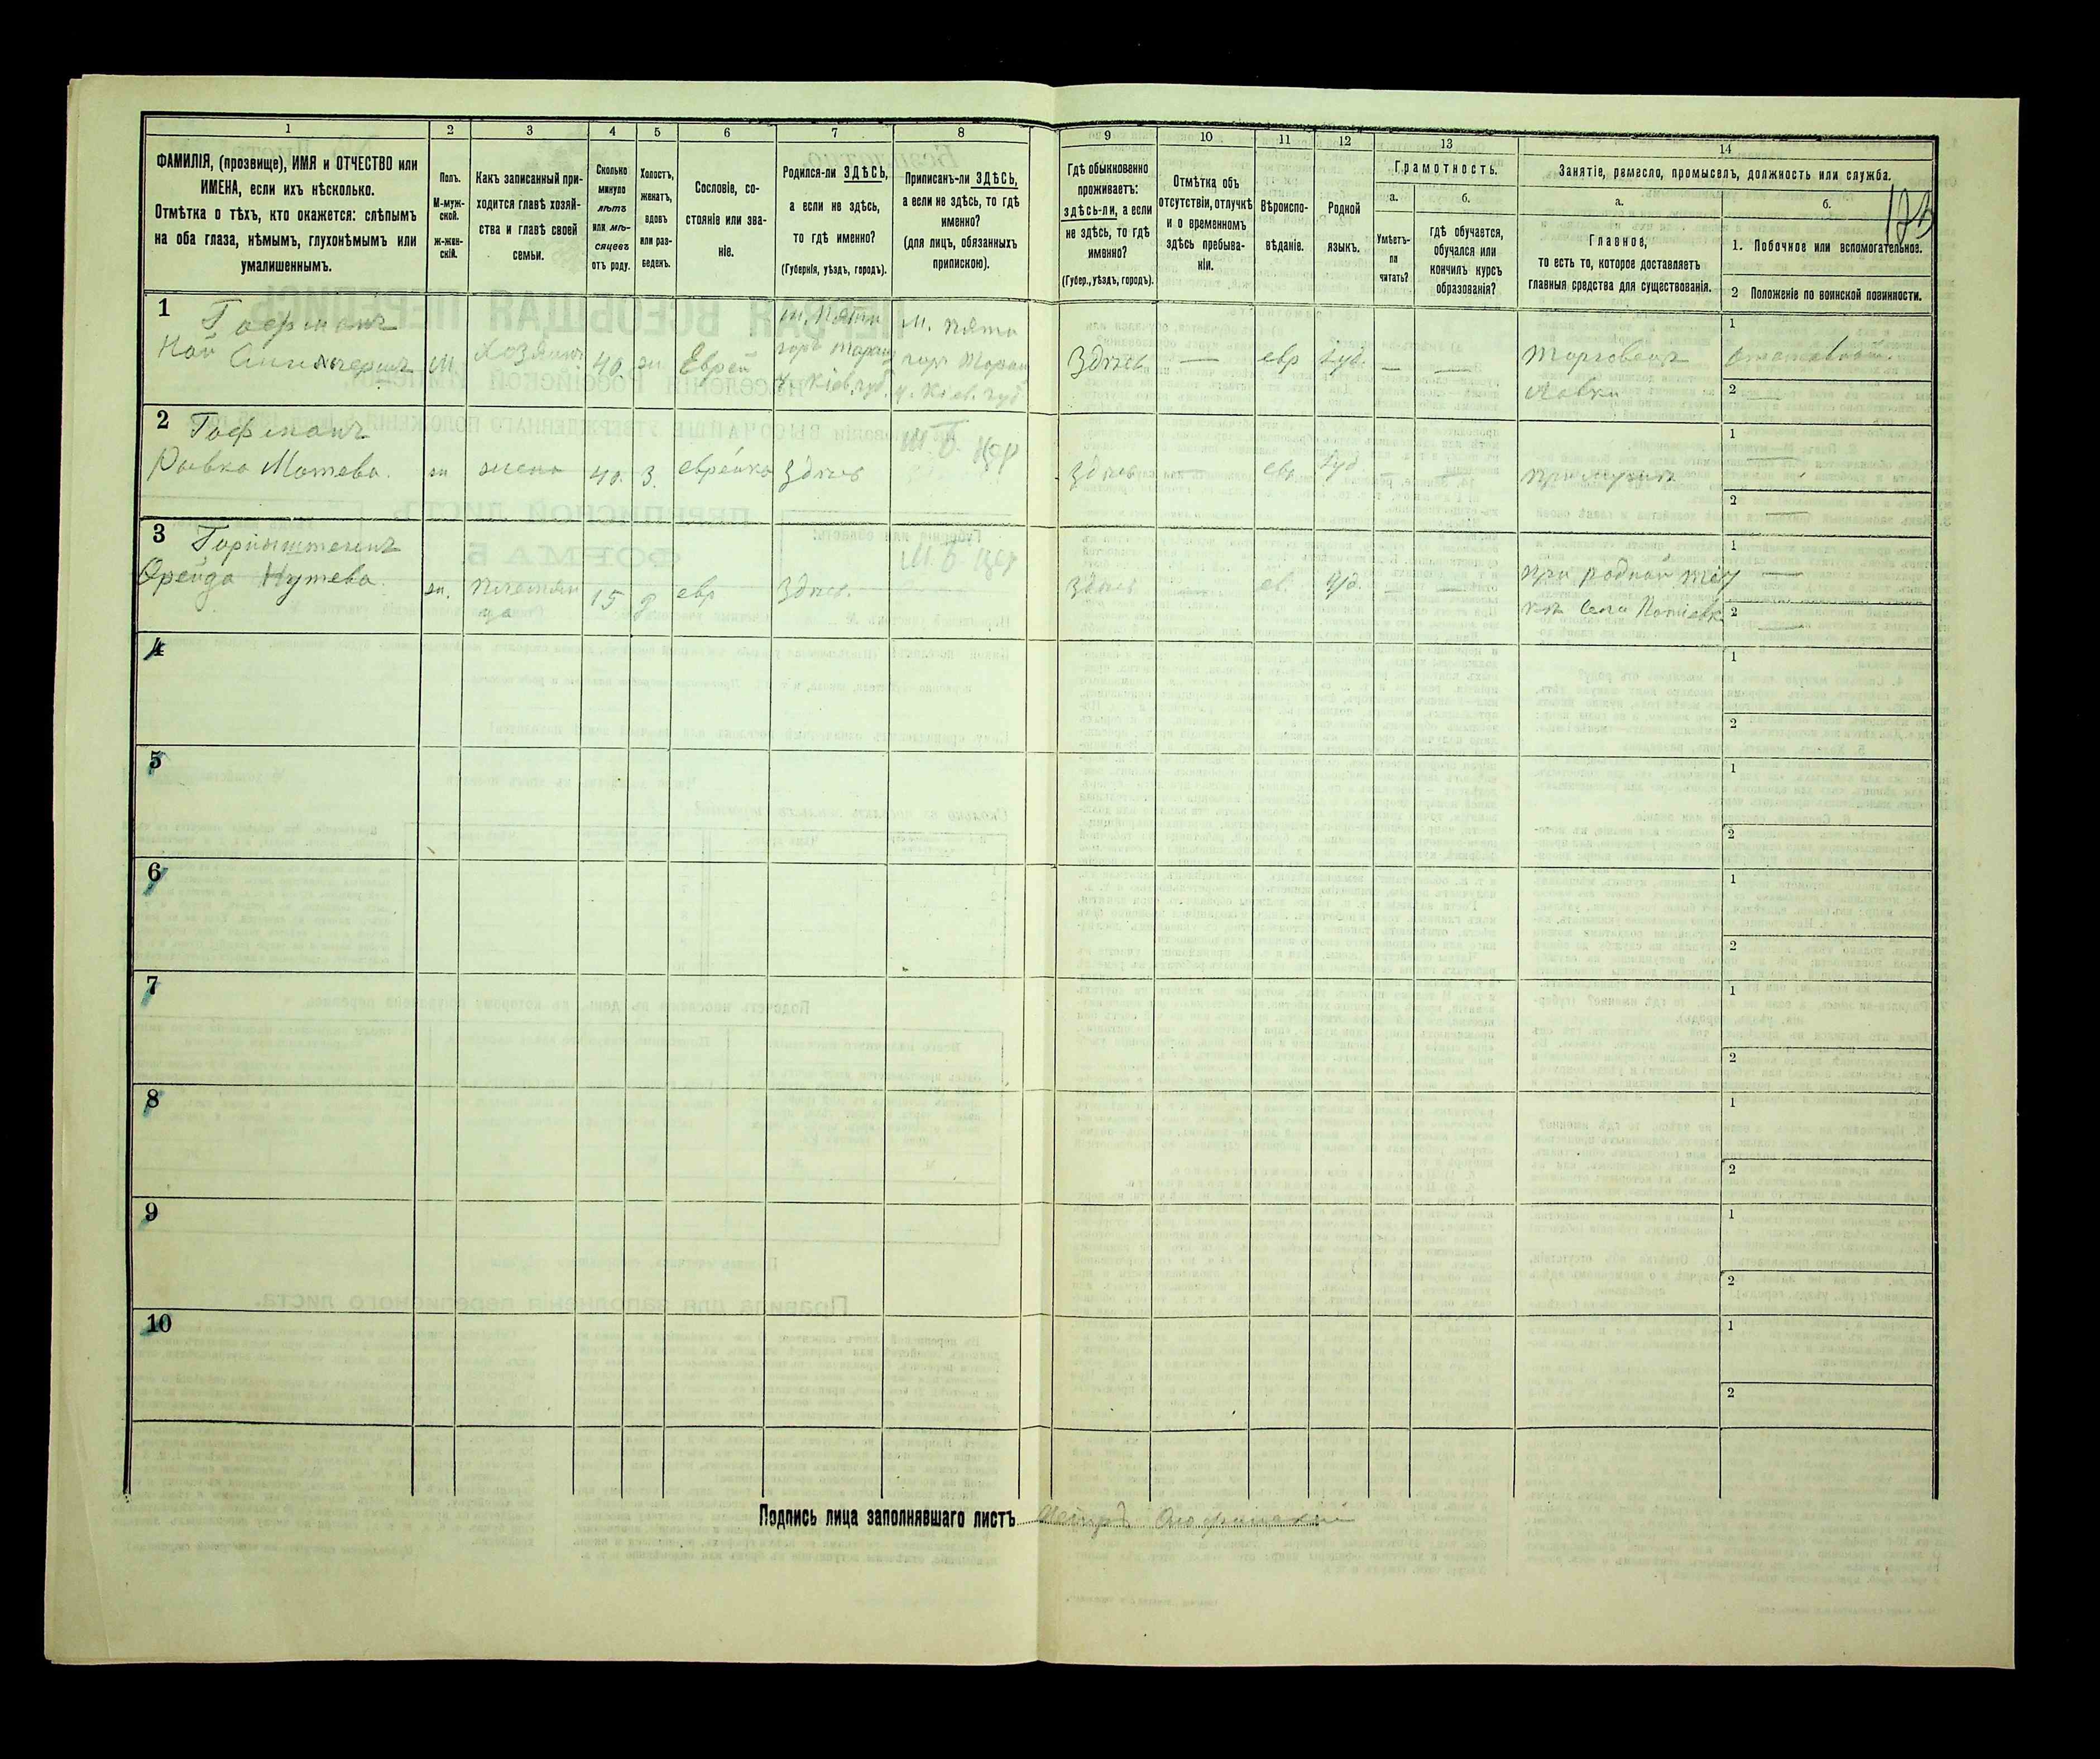 1 2 3 4 5 6 7 8 9 10 11 12 13 14
ФАМИЛІЯ, (прозвище), ИМЯ и ОТЧЕСТВО или
ИМЕНА, если ихъ нѣсколько.
Отмѣтка о тѣхъ, кто окажется: слѣпымъ
на оба глаза, нѣмымъ, глухонѣмымъ или
умалишеннымъ.
Полъ.
М-муж-
ской.
ж-жен-
скій.
Какъ записанный при-
ходится главѣ хозяй-
ства и главѣ своей
семьи.
Сколько
минуло
лѣтъ
или мѣ-
сяцевъ
отъ роду.
Холостъ,
женатъ,
вдовъ
или раз-
веденъ.
Сословіе, со-
стояніе или зва-
ніе.
Родился-ли ЗДѢСЬ,
а если не здѣсь,
то гдѣ именно?
(Губернія, уѣздъ, городъ).
Приписанъ-ли ЗДѢСЬ,
а если не здѣсь, то гдѣ
именно?
(для лицъ, обязанныхъ
припискою).
Гдѣ обыкновенно
проживаетъ:
здѣсь-ли, а если
не здѣсь, то гдѣ
именно?
(Губер., уѣздъ, городъ).
Отмѣтка объ
отсутствіи, отлучкѣ
и о временномъ
здѣсь пребыва-
ніи.
Вѣроиспо-
вѣданіе.
Родной
языкъ.
Грамотность.
а.
Умѣетъ-
ли
читать?
б.
гдѣ обучается,
обучался или
кончилъ курсъ
образованія?
Занятіе, ремесло, промыселъ, должность или служба.
а.
Главное,
то есть то, которое доставляетъ
главныя средства для существованія.
б.
1. Побочное или вспомогательное.
2 Положеніе по воинской повинности.
1 Гофманъ
М. Хозяинъ 40. ж. Еврей
м. Пята
Кіев. губ.
м. Пята
у. Кіев. губ.
Здѣсь — евр — —
Торговецъ
Лавки
1
2 —
2 Гофманъ
Ривка Мотева. ж жена 40. З. еврейка Здѣсь
здѣсь — евр — —
при мужѣ
1 —
2 —
3
Фрейда Нутева. ж. племян
ца 15 д евр Здѣсь.
здѣсь ев. — —
при родной
1 —
2 —
4 1
2
5 1
2
6 1
2
7 1
2
8 1
2
9 1
2
10 1
2
Подпись лица заполнявшаго листъ